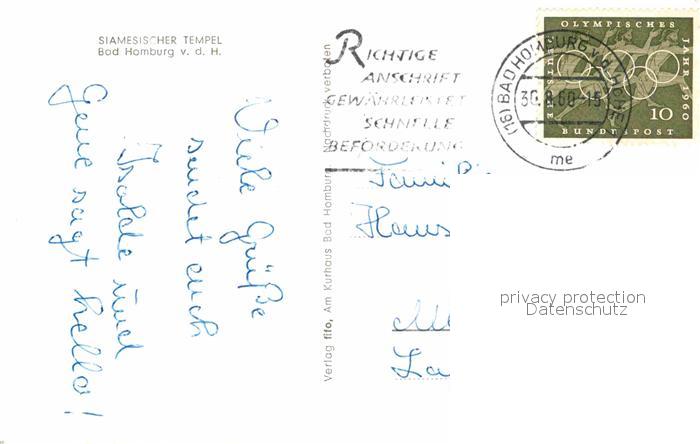 SIAMESISCHER TEMPEL
Bad Homburg v. d. H.
Viele Grüße
sendet euch
Isolde und
Gene sagt hello!
Verlag fifo, Am Kurhaus Bad Homburg Nachdruck verboten
RICHTIGE
ANSCHRIFT
GEWÄHRLEISTET
SCHNELLE
BEFÖRDERUNG
(16) BAD HOMBURG v.d. HÖHE
30.8.60-15
me
OLYMPISCHES
JAHR 1960
10
BUNDESPOST
DEUTSCHE
Fami
Hans
La
privacy protection
Datenschutz